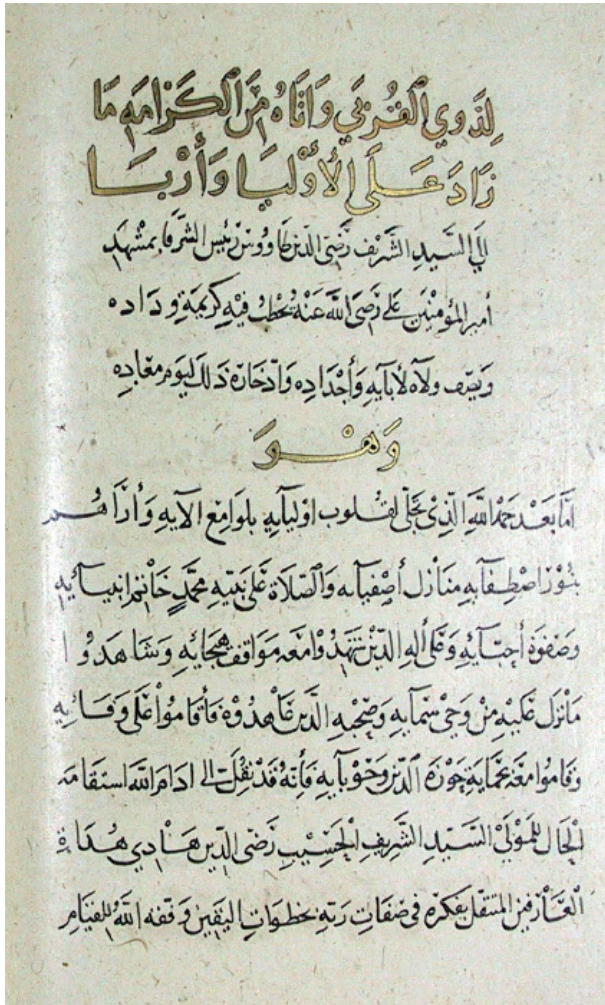 لِذَوِي الْقُرْبَي وَاتَاهُ مِنَ الْكَرَامَةِ مَا
زَادَ عَلَى الْأَوْلِيَا وَأَرْبَا
إلى السَّيِّدِ الشَّرِيفِ رَضِيّ الدين طاووس رئيس الشرفا بمشهد
أمير المؤمنين علي رَضِيَ اللَّه عَنْهُ يخطب فيه كريمة وداده
ويصف ولاه لأبايه وَأَجْدَادِه وَادخاره ذلك ليوم معاده
وَهْوَ
امَّا بَعْد حَمْدِ اللَّهِ الَّذِي تجلى لقلوب اوليايه بلوامع الايه وَأراهُم
بنُور اصْطِفَايِه مَنَازِل أصْفِيائه وَالصَّلاة عَلَى نَبِيِّه محمَّدٍ خاتم انبيائِه
وَصَفْوَة أحِبَّايِهِ وَعَلَى ألِهِ الَّذِين شَهِدُوا مَعَه مَوَاقِف هيجَايِهِ وَشَاهَدُوا
مَا نَزَل عَلَيْهِ مِنْ وَحْيِ سَمَايِهِ وَصَحْبِهِ الَّذِين عَاهَدُوه فَأقَامُوا عَلَى وَفَائِهِ
وَقَامُوا مَعَهُ بحماية حَوْزَة الدّين وَحَوْبَايِهِ فَأِنَّهُ قَدْ نُقِلَت الى ادَامَ اللَّه استقامة
الحَال للمَوْلَيْ السَّيِّد الشَّرِيفِ الْحَسِيبِ رَضِيّ الدِّين هَادِي هُدَاة
الْعَارِفين المتنقل بفكره في صِفَاتِ رَبِّه بخطوَاتِ اليقين وَقفه اللَّهُ للقيَامِ